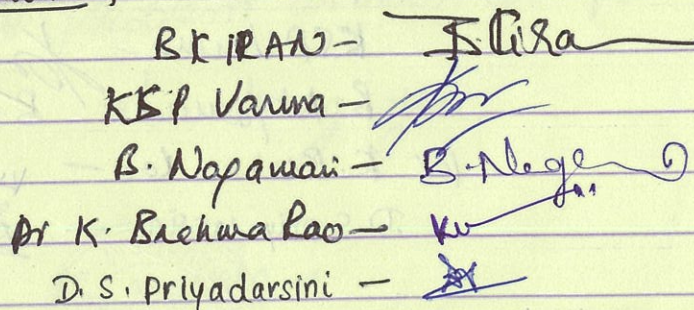 B KIRAN - B. Kira
KBP Varma -
B. Nagamani - B. Nage
Dr K. Brehma Rao -
D. S. Priyadarsini -